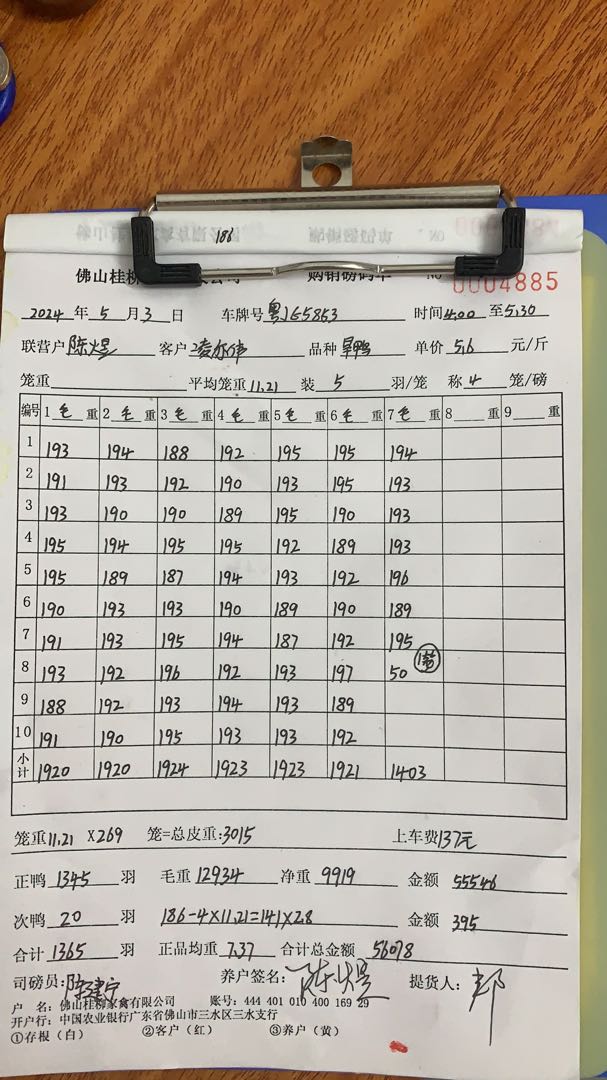 186
佛山桂柳 公司 购销磅码单 NO 0004885
2024 年 5 月 3 日 车牌号 粤JG5853 时间 4.00 至 5.30
联营户 陈煜 客户 凌尔伟 品种 旱鸭 单价 5.6 元/斤
笼重 平均笼重 11.21 装 5 羽/笼 称 4 笼/磅
编号 1 毛 重 2 毛 重 3 毛 重 4 毛 重 5 毛 重 6 毛 重 7 毛 重 8 重 9 重
1 193 194 188 192 195 195 194
2 191 193 192 190 193 195 193
3 193 190 190 189 195 190 193
4 195 194 195 195 192 189 193
5 195 189 187 194 193 192 196
6 190 193 193 190 189 190 189
7 191 193 195 194 187 192 195
8 193 192 196 192 193 197 50 1笼
9 188 192 193 194 193 189
10 191 190 195 193 193 192
小计 1920 1920 1924 1923 1923 1921 1403
笼重 11.21 X269 笼=总皮重: 3015 上车费 137元
正鸭 1345 羽 毛重 12934 净重 9919 金额 55546
次鸭 20 羽 186-4×11.21=141×2.8 金额 395
合计 1365 羽 正品均重 7.37 合计总金额 56078
司磅员: 养户签名: 陈煜 提货人:
户 名: 佛山桂柳家禽有限公司 账号: 444 401 010 400 169 29
开户行: 中国农业银行广东省佛山市三水区三水支行
①存根(白) ②客户(红) ③养户(黄)